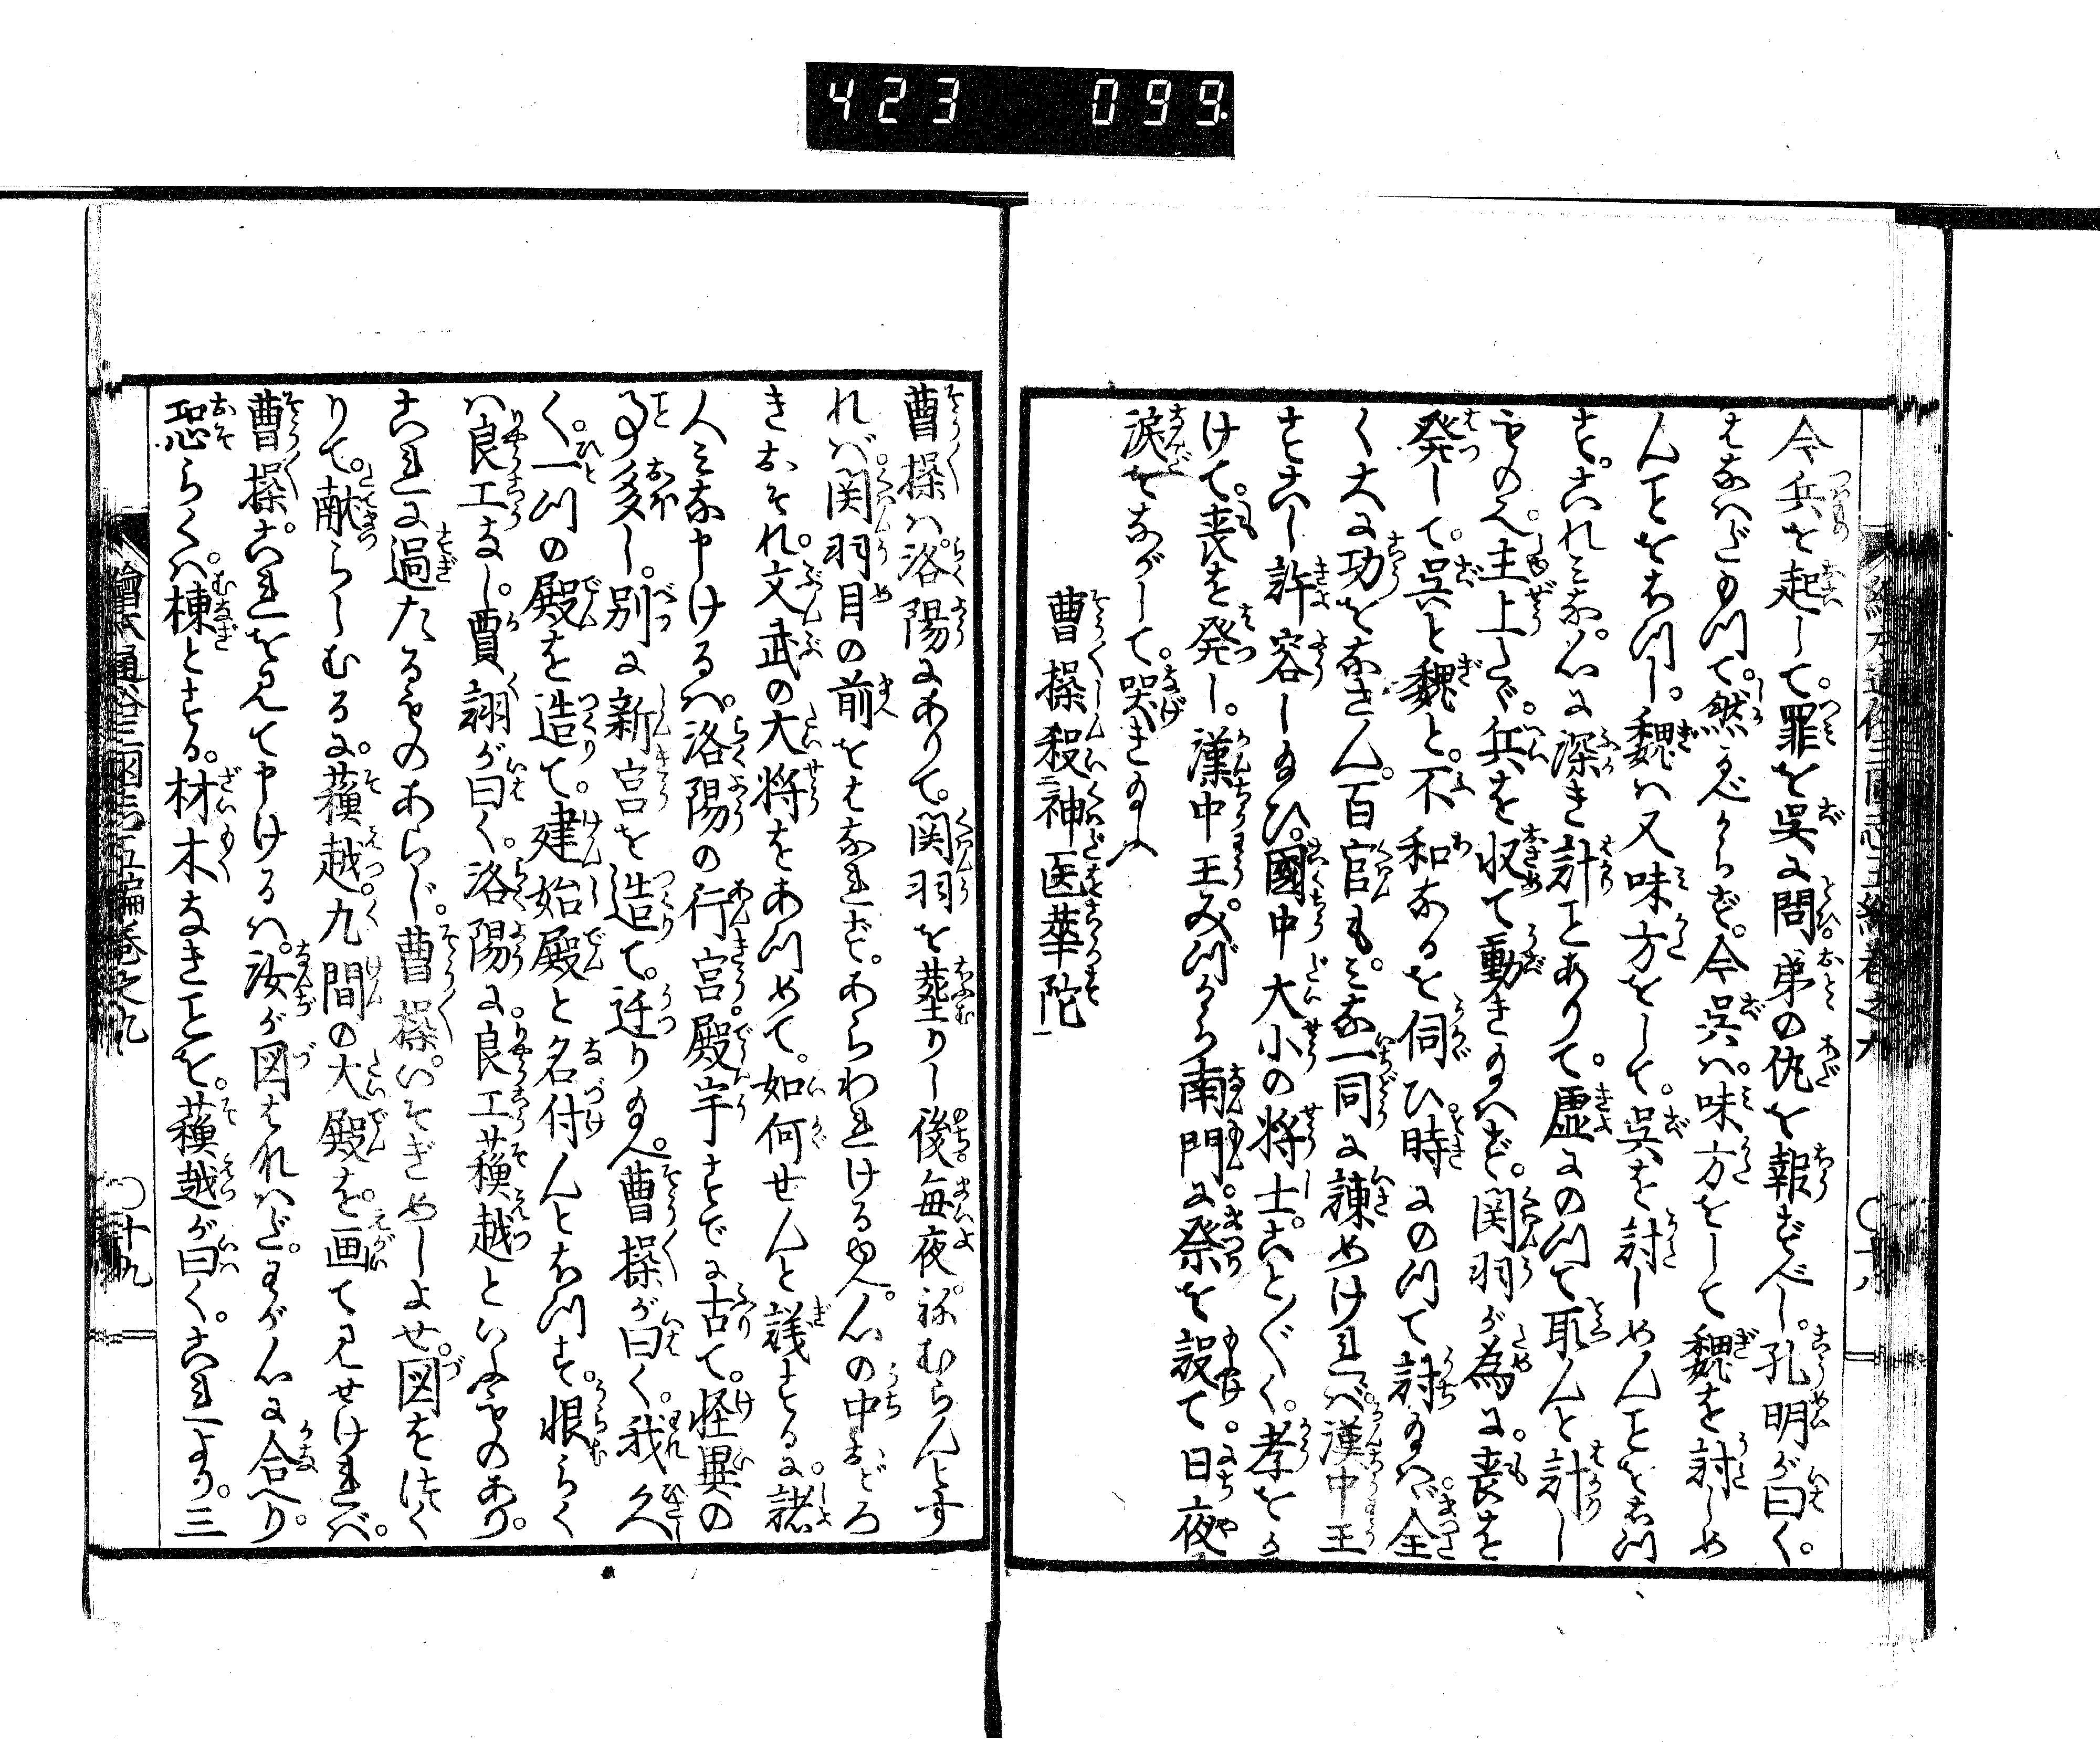 423 099
今兵を起して。罪を呉に問。弟の仇を報ずべし。孔明が曰く。
さなハだもつて。然べからず。今呉ハ。味方をして魏を討しめ
んことをおもひ。魏ハ又味方をして。呉を討しめんことをおもつ
す。これみな。心に深き計ことありて。虚にのつて取んと計し
ものなり。主上しばらく。兵を収て動き玉へず。関羽が為に。喪を
発して。呉と魏と。不和なるを伺ひ。時にのつて討玉ハヾ。全
く大に功をなさん。百官も。みな一同に諫めけれバ。漢中王
すこし許容し玉ひ。國中大小の将士。こと〴〵く。孝をか
けて。喪を発し。漢中王。みづから南門に祭を設て。日夜
涙をながして。哭き玉ふ
曹操殺神医華陀
曹操ハ。洛陽にありて。関羽を葬りし後。毎夜。ねむらんとす
れバ。関羽目の前をはなれず。あらわれけるゆへ。心の中おどろ
きおそれ。文武の大将をあつめて。如何せんと議するに。諸
人みな申けるハ。洛陽の行宮。殿宇すでに古て。怪異の
事多し。別に新宮を造て。迁り玉へ。曹操が曰く。我久し
く。一つの殿を造て。建始殿と名付んとおもつす。恨らく
ハ良工なし。賈詡が曰く。洛陽に。良工蘓越といふものあり。
これに過たるものあらじ。曹操。いそぎめしよせ。図をつく
りて。献らしむるに。蘓越。九間の大殿を。画て見せけれバ。
曹操。これを見て申けるハ。汝が図すれハど。わが心に合へり。
恐らくハ。棟とする。材木なきことを。蘓越が曰く。これより。三
繪本通俗三國志五編巻之九
十九